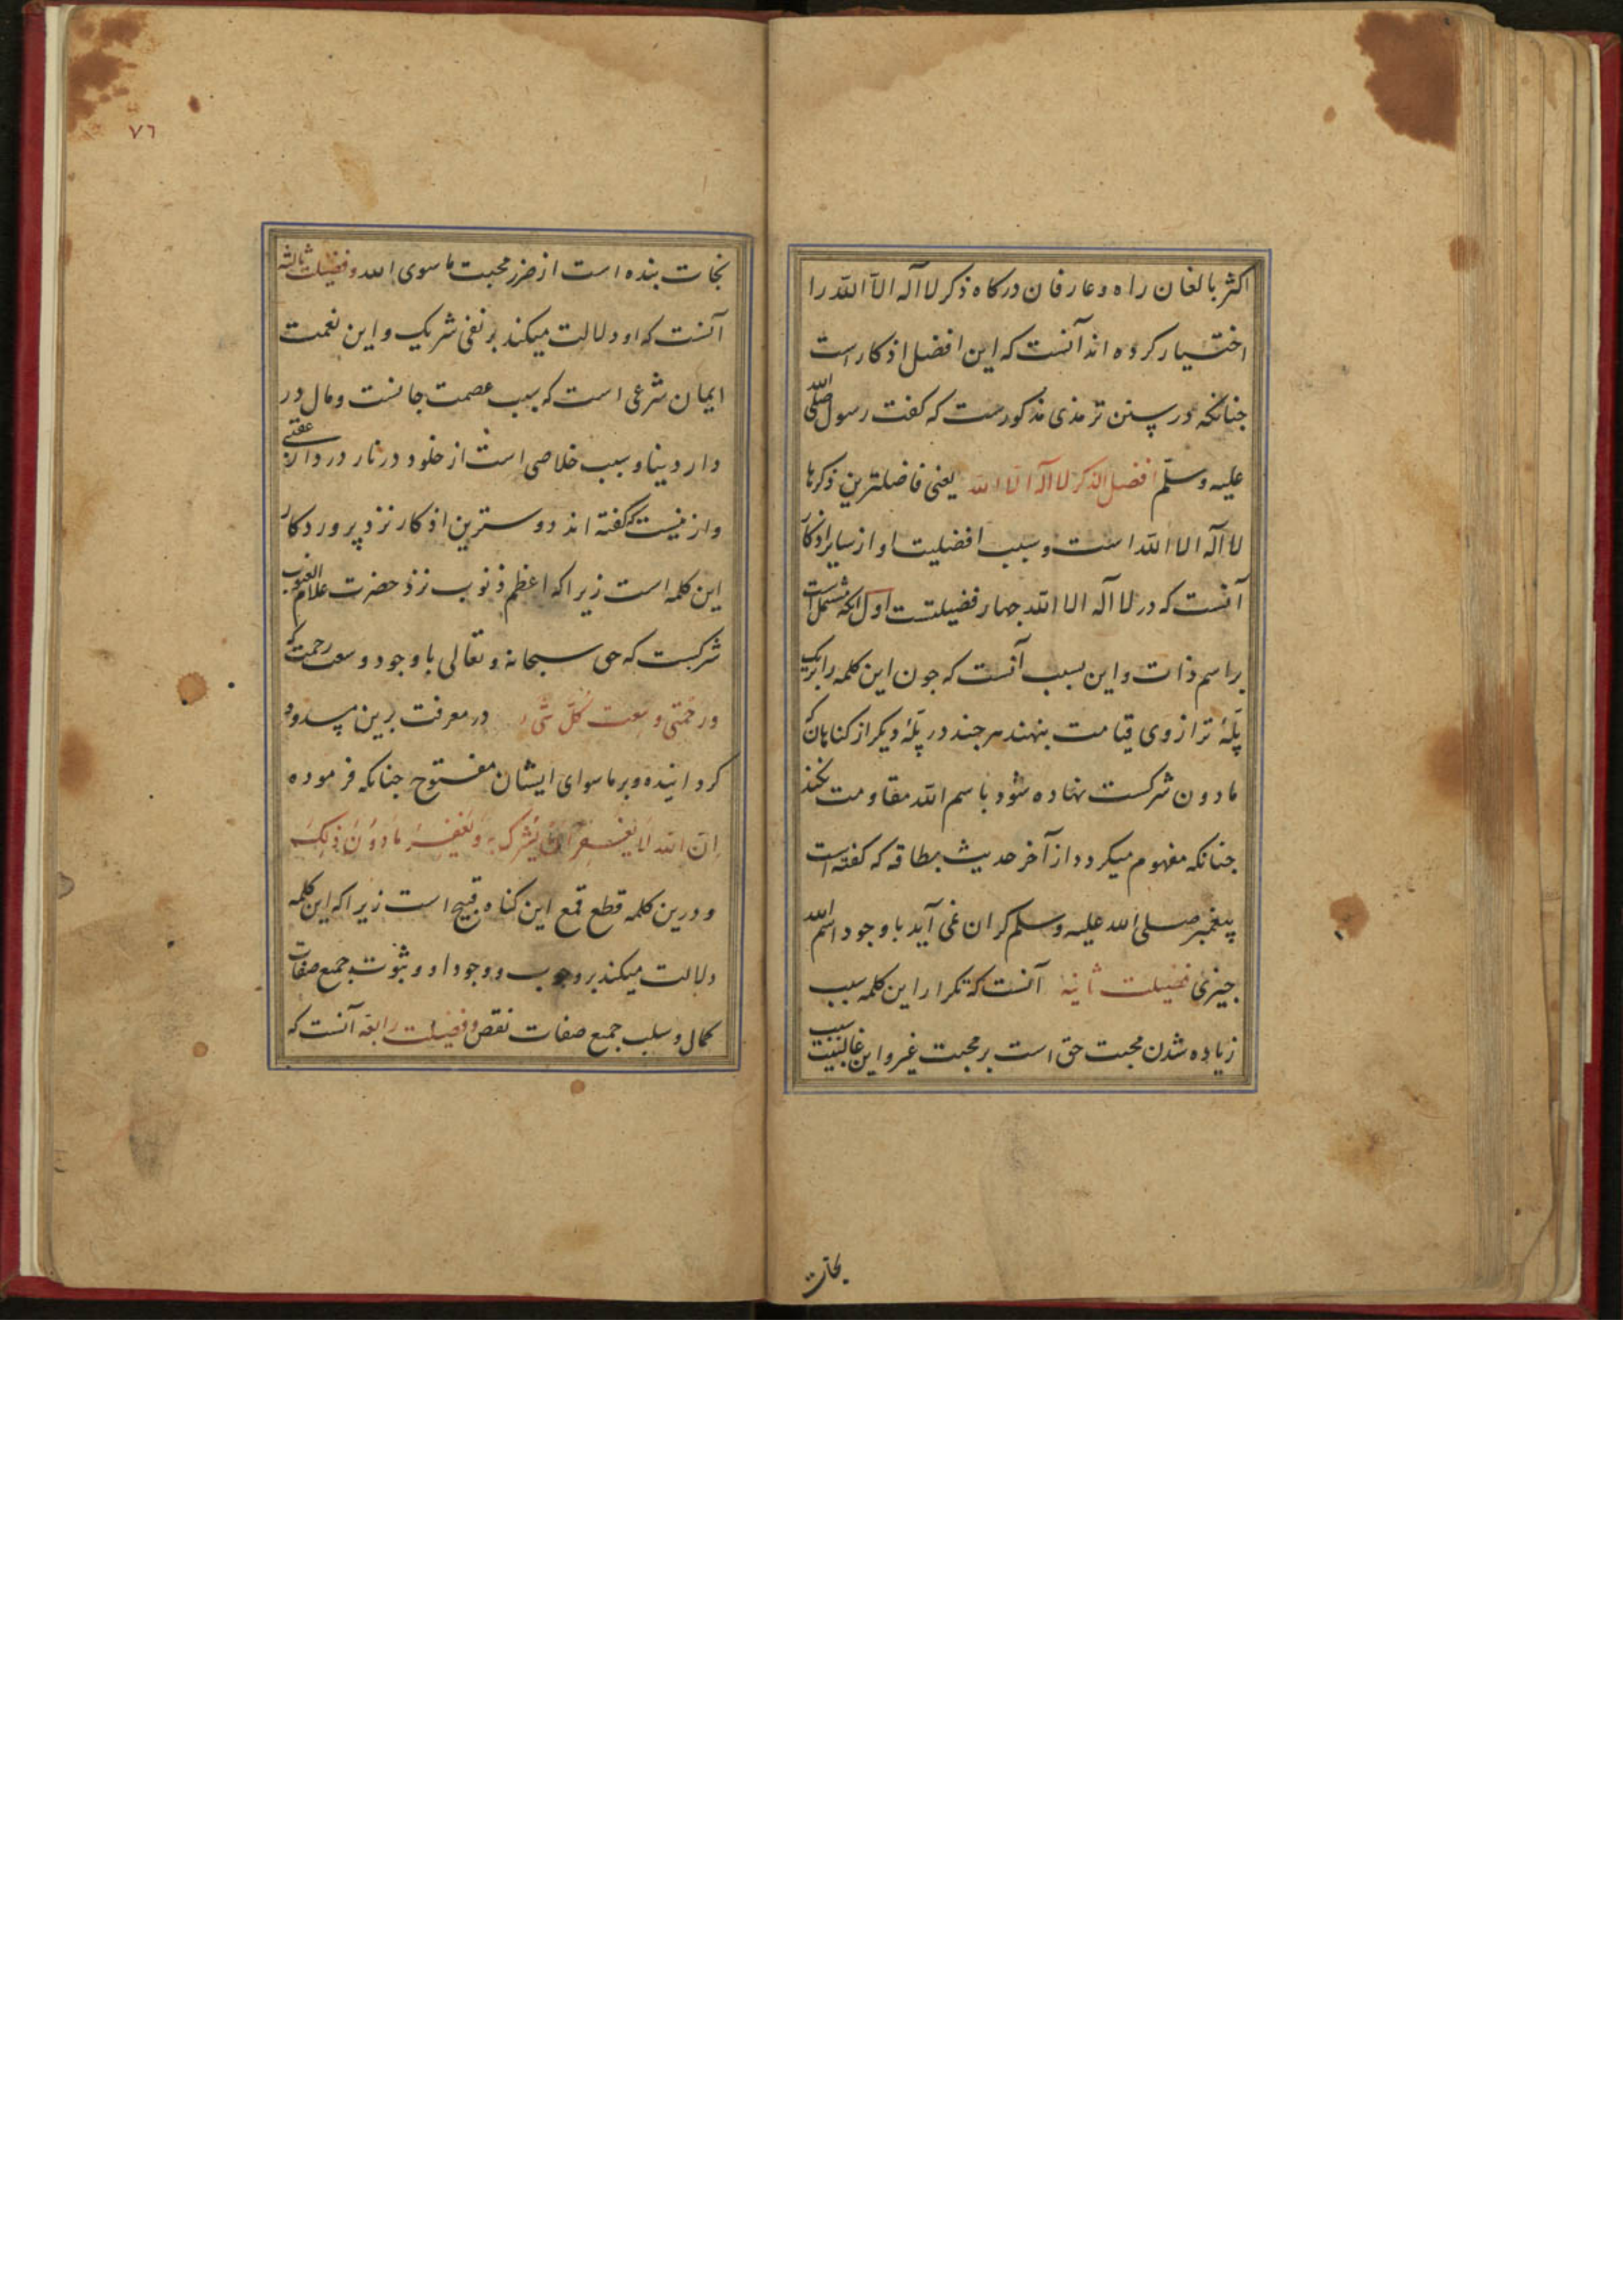 اکثر بالغان راه و عارفان درکاه ذکر لا اله الا الله را
اختیار کرده اند آنست که این افضل اذکار است
جنانکه در سنن ترمذی مذکورست که کفت رسول صلی الله
علیه وسلم افضل الذکر لا اله الا الله یعنی فاضلترین ذکرها
لا اله الا الله است و سبب افضلیت او از سایر اذکار
آنست که در لا اله الا الله جهار فضیلتست اول انکه مشتمل است
بر اسم ذات و این بسبب آنست که جون این کلمه را بر یک
پلهٔ ترازوی قیامت بنهند هر جند در پلهٔ دیکر از کناهان که
مادون شرکست نهاده شود با اسم الله مقاومت نکند
جنانکه مفهوم میکردد از آخر حدیث بطاقه که کفته است
پیغمبر صلی الله علیه وسلم کران نمی آید با وجود اسم الله
جیزی فضیلت ثانیه آنست که تکرار این کلمه سبب
زیاده شدن محبت حق است بر محبت غیر و این غالبیت سبب
نجات
٧٦
نجات بنده است از ضرر محبت ما سوی الله و فضیلت ثالثه
آنست که او دلالت میکند بر نفی شریک و این نعمت
ایمان شرعی است که سبب عصمت جانست و مال در
دار دینا و سبب خلاصی است از خلود در نار در دار عقبی
و ازینست که کفته اند دوسترین اذکار نزد پروردکار
این کلمه است زیرا که اعظم ذنوب نزد حضرت علام الغیوب
شرکست که حق سبحانه و تعالی با وجود وسعت رحمت که
ورحمتی وسعت کل شی در معرفت برین مسدود
کردانیده و بر ما سوای ایشان مفتوح جنانکه فرموده
ان الله لا یغفر ان یشرک به ویغفر ما دون ذلک
و درین کلمه قطع قمع این کناه قبیح است زیرا که این کلمه
دلالت میکند بر وجوب و وجود او و ثبوت جمیع صفات
کمال و سلب جمیع صفات نقص و فضیلت رابعه آنست که